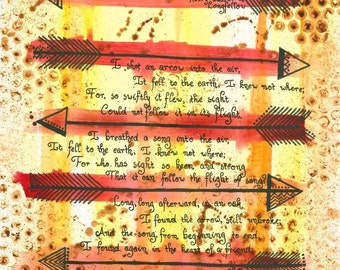 Longfellow
I shot an arrow into the air,
It fell to the earth, I knew not where;
For, so swiftly it flew, the sight
Could not follow it in its flight.
I breathed a song into the air,
It fell to the earth, I knew not where;
For who has sight so keen and strong
That it can follow the flight of song?
Long, long afterward, in an oak
I found the arrow, still unbroke;
And the song, from beginning to end,
I found again in the heart of a friend.